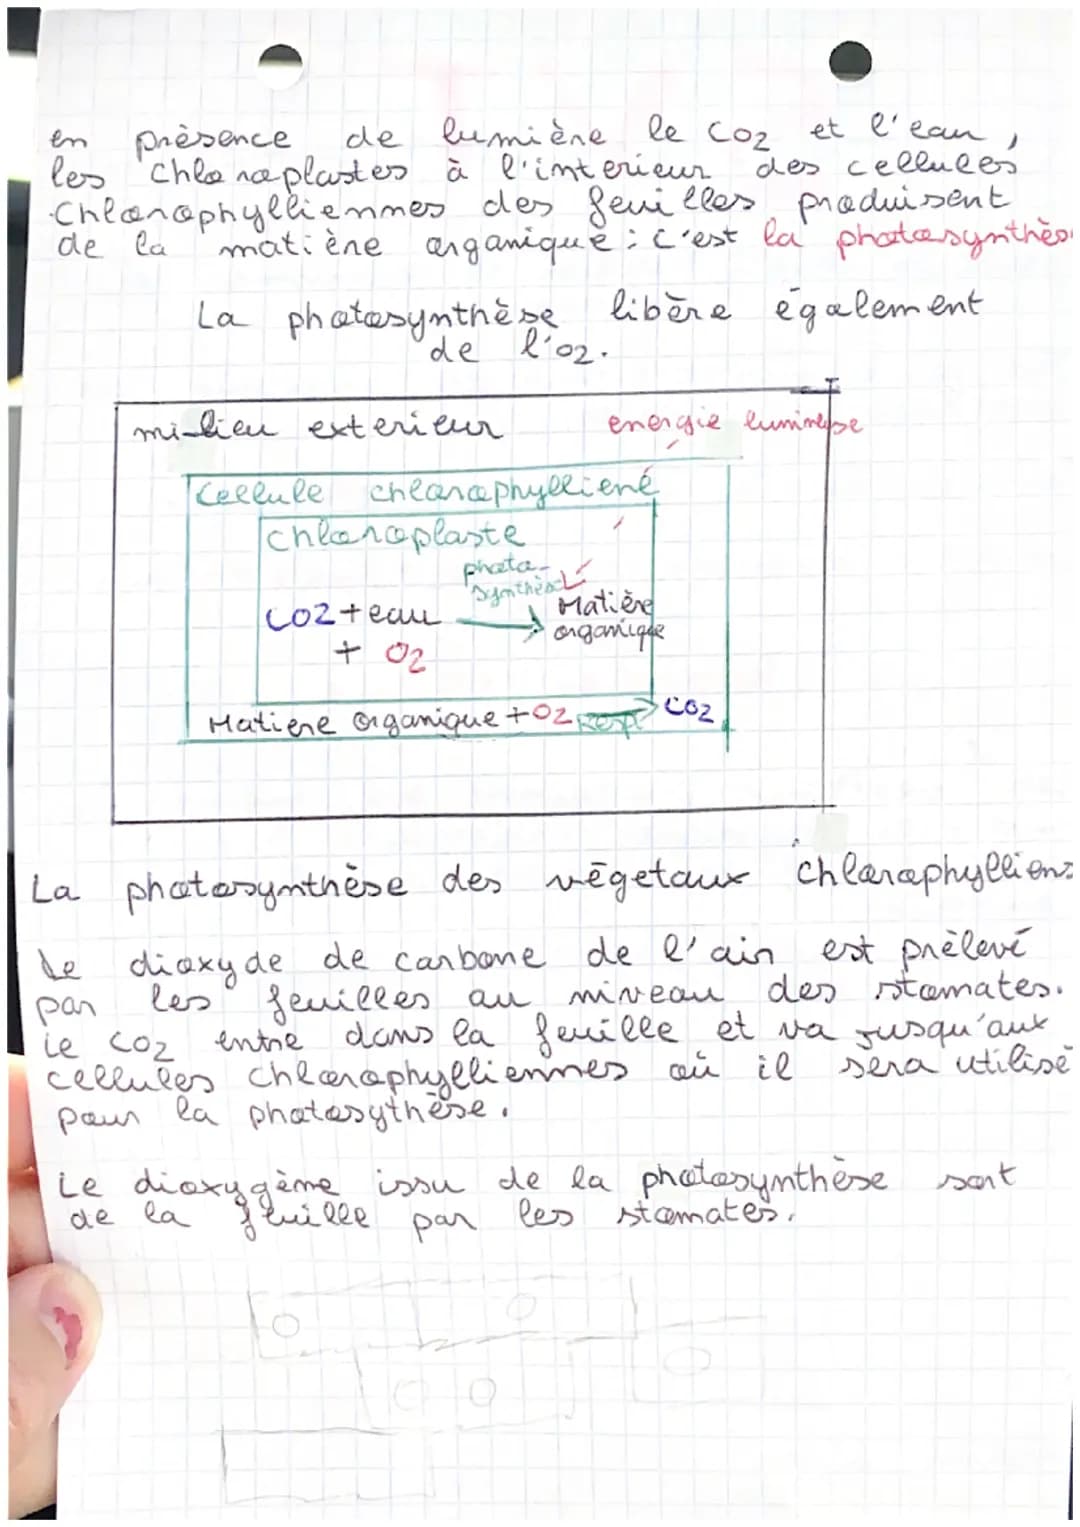 en présence de lumière le CO2 et l'eau,
les Chloroplastes à l'interieur des cellules
Chlorophylliennes des feuilles produisent
de la matière organique : c'est la photosynthès
La photosynthèse libère également
de l'O2.
milieu exterieur energie lumineuse
Cellule chlorophylliene
chloroplaste
photo-
synthèse
CO2 + eau Matière
organique
+ O2
Matiere organique + O2 Resp. CO2
La photosynthèse des végetaux chlorophylliens
Le dioxyde de carbone de l'air est prélevé
par les feuilles au niveau des stomates.
Le CO2 entre dans la feuille et va jusqu'aux
cellules chlorophylliennes où il sera utilisé
pour la photosythèse.
Le dioxygène issu de la photosynthèse sort
de la feuille par les stomates.